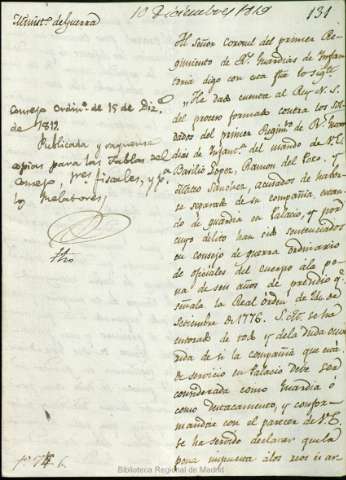 Minist.º de Guerra
10 Diciembre 1819
131
Consejo Ordin.º de 15 de Diz.e
de 1819
Publicada y saquense
copias para las Tablas del
Consejo, tres fiscales, y p.a
los Relatores,
Al Señor Coronel del primer Re-
gimiento de R.s Guardias de Infan-
teria digo con esta fha lo sig.te
"He dado cuenta al Rey N. S.
del proceso formado contra los Sol-
dados del primer Regim.to de R.s Guar-
dias de Infant.a del mando de V.E.
Basilio Lopez, Ramon del Pozo, y
Mateo Sanchez, acusados de haber-
se separado de su compañia estan-
do de guardia en Palacio, y por
cuyo delito han sido sentenciados
en consejo de guerra ordinario
de oficiales del cuerpo á la pe-
na de seis años de presidio q.e
señala la Real orden de
de 1776. S. M. se ha
enterado de todo y de la duda ocur-
rida de si la compañia que está
de servicio en Palacio debe ser
considerada como Guardia ó
como destacamento, y confor-
mandose con el parecer de V.E.
se ha servido declarar que la
pena impuesta á los reos es ar-
Biblioteca Regional de Madrid